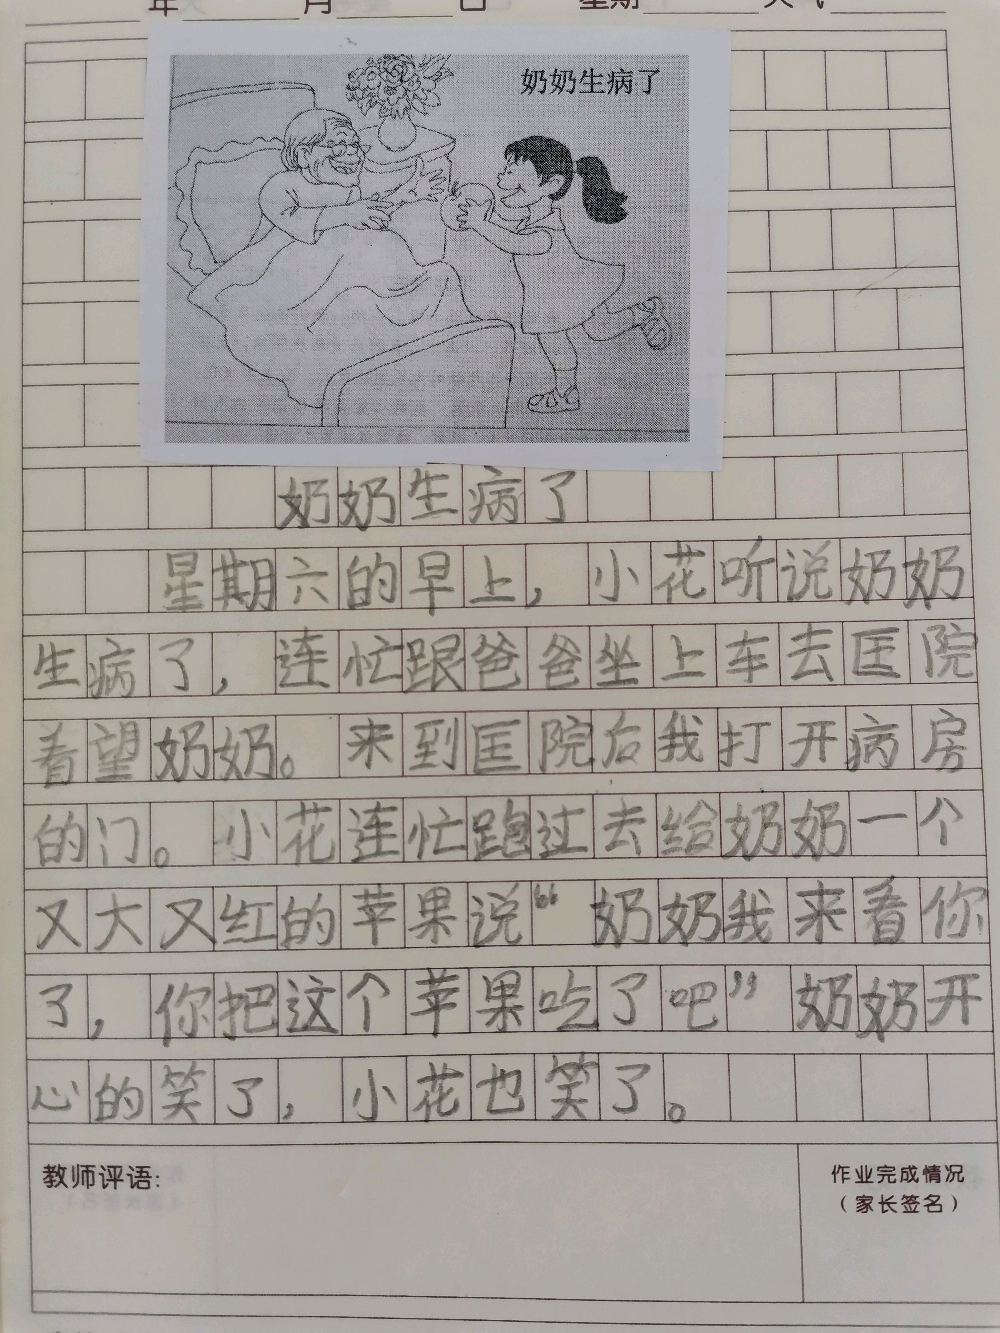 年 月 日 星期 天气
奶奶生病了
奶奶生病了
星期六的早上，小花听说奶奶
生病了，连忙跟爸爸坐上车去匡院
看望奶奶。来到匡院后我打开病房
的门。小花连忙跑过去给奶奶一个
又大又红的苹果说“奶奶我来看你
了，你把这个苹果吃了吧”奶奶开
心的笑了，小花也笑了。
教师评语:
作业完成情况
（家长签名）